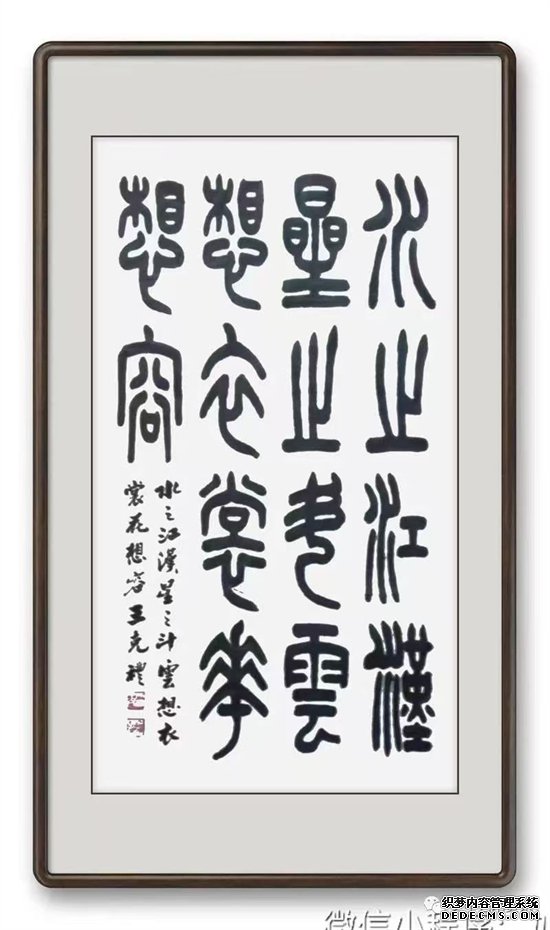 水之江漢
星之斗雲
想衣裳華
想容
水之江漢星之斗雲想衣
裳花想容王克禮
织梦内容管理系统
DEDECMS.COM
微信小程序